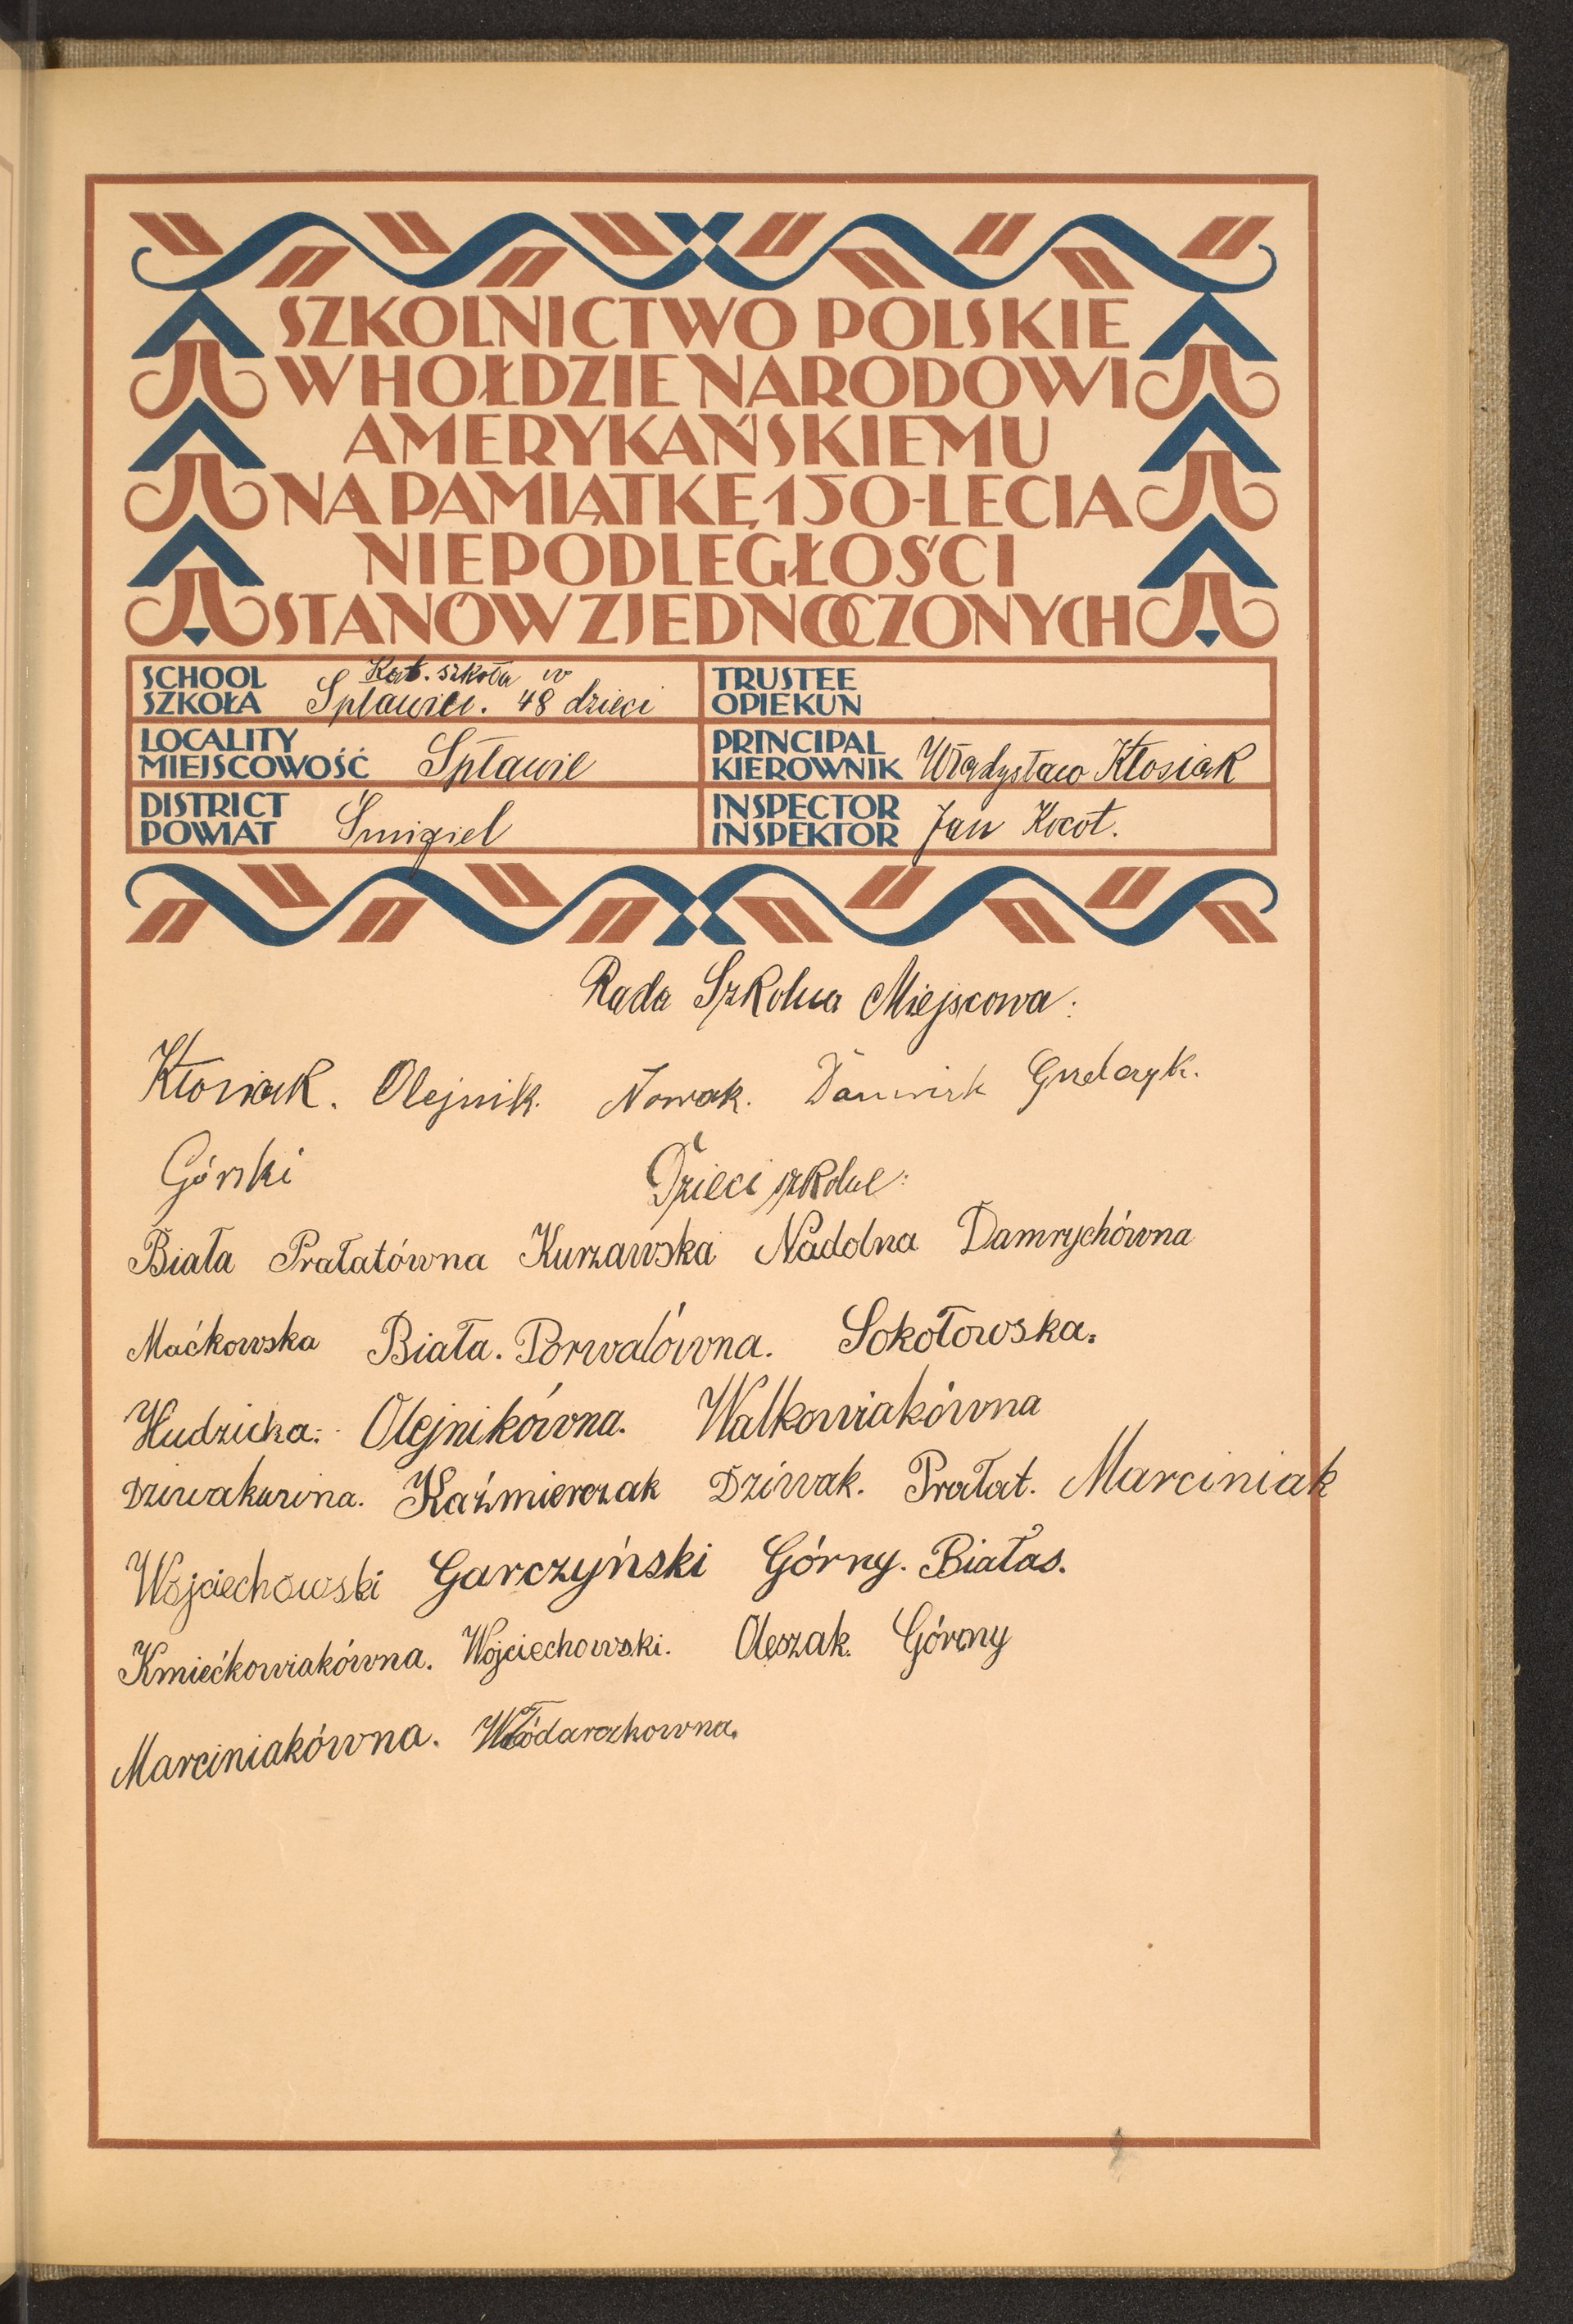 SZKOLNICTWO POLSKIE
W HOŁDZIE NARODOWI
AMERYKAŃSKIEMU
NA PAMIĄTKĘ 150-LECIA
NIEPODLEGŁOŚCI
STANÓW ZJEDNOCZONYCH
SCHOOL
SZKOŁA
Kat. szkoła w
Spławiu. 48 dzieci
TRUSTEE
OPIEKUN
LOCALITY
MIEJSCOWOŚĆ Spławie
PRINCIPAL
KIEROWNIK Władysław Kłosiak
DISTRICT
POWIAT Śmigiel
INSPECTOR
INSPEKTOR Jan Kocot.
Rada Szkolna Miejscowa:
Kłosiak. Olejnik. Nowak. Grzelczyk.
Górski
Dzieci szkolne:
Biała Prałatówna Kurzawska Nadolna Damrychówna
Maćkowska Biała. Porwalówna. Sokołowska.
Hudzicka. Olejnikówna. Walkowiakówna
Kaźmierczak Dziwak. Prałat. Marciniak
Wojciechowski Garczyński Górny. Białas.
Kmiećkowiakówna. Wojciechowski. Oleszak. Górny
Marciniakówna. Włódarzkowna.